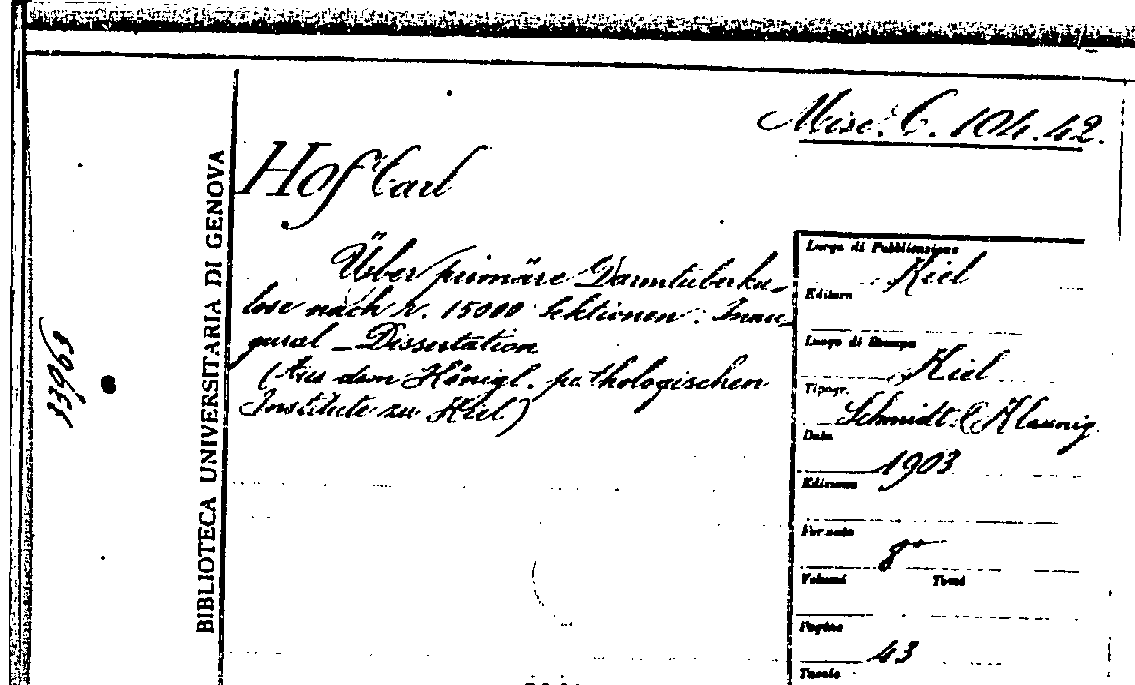 Misc. C. 104.42.
Hof Carl
Über primäre Darmtuberku-
lose nach r. 15000 Sektionen: Inau-
gural-Dissertation
(Aus dem Königl. pathologischen
Institute zu Kiel)
BIBLIOTECA UNIVERSITARIA DI GENOVA
Luogo di Pubblicazione
Kiel
Editore
Luogo di Stampa
Kiel
Tipogr.
Schmidt & Klaunig
Data
1903
Edizione
Formato
8°
Volumi Tomi
Pagine
43
Tavole